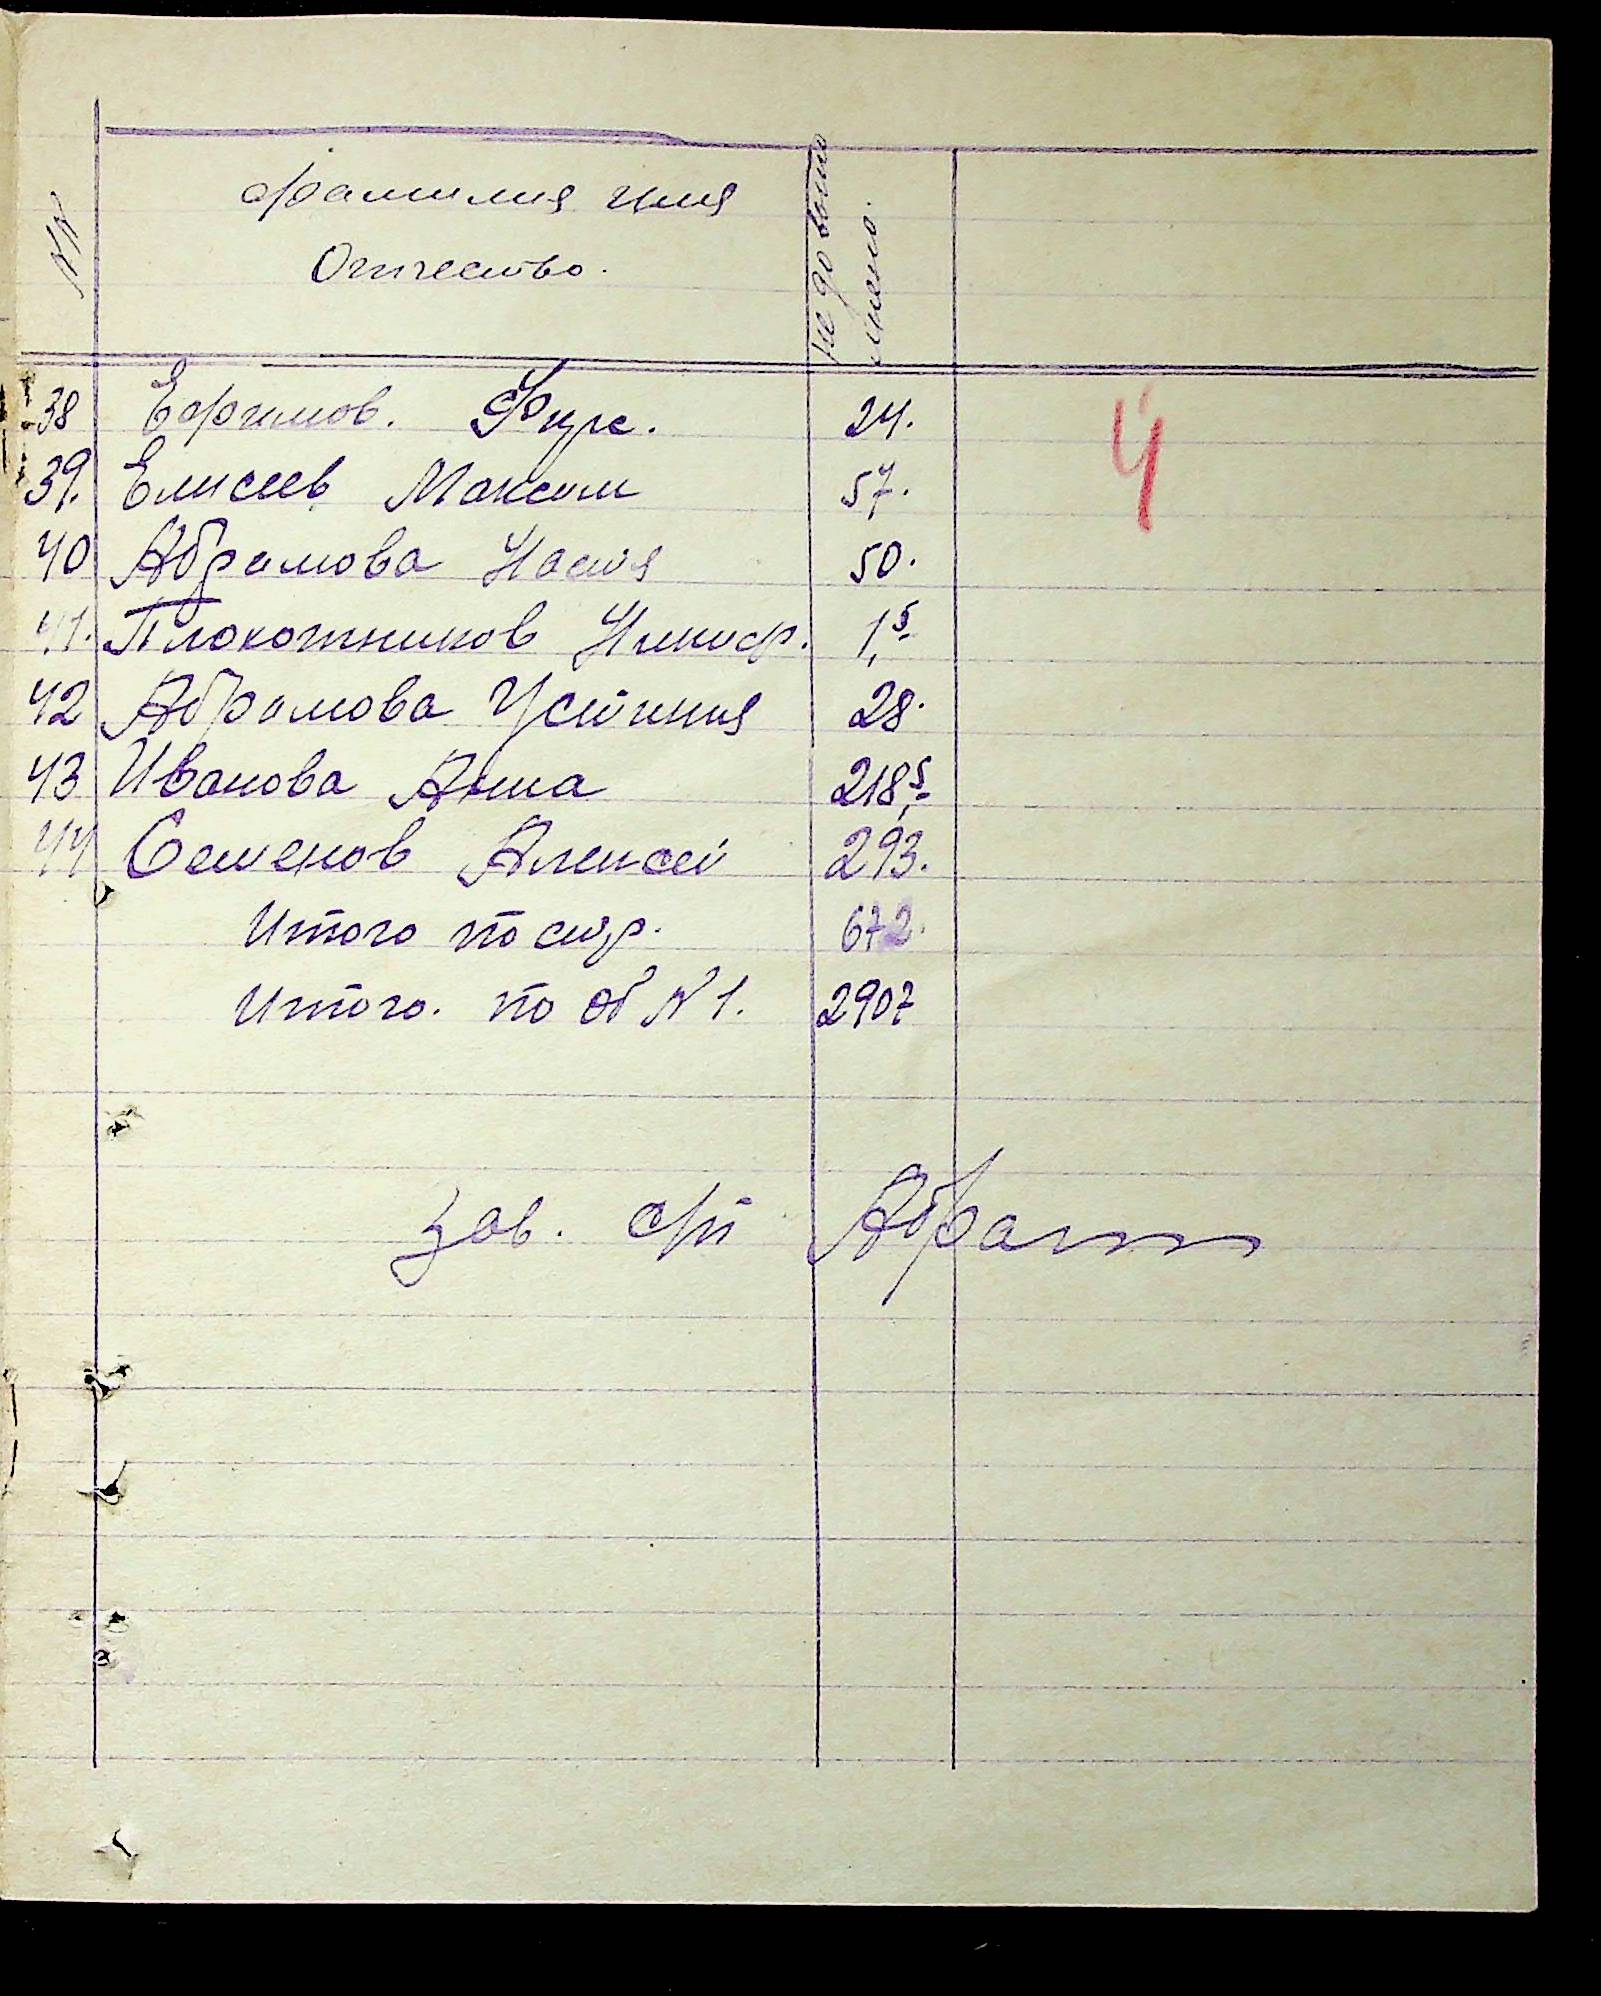 NN
фамилия имя
Отчество.
не до воло
мнено.
38 Ефимов. 24.
4
39. Елисеев Максим 57.
40 Абрамова Настя 50.
41. Плокотников Никиф. 1,5-
42 Абрамова Устиния 28.
43 Иванова Анна 218,5-
44 Семенов Алексей 293.
Итого по стр. 672.
Итого. по об N 1. 2907
Зав. ф/т Абрам